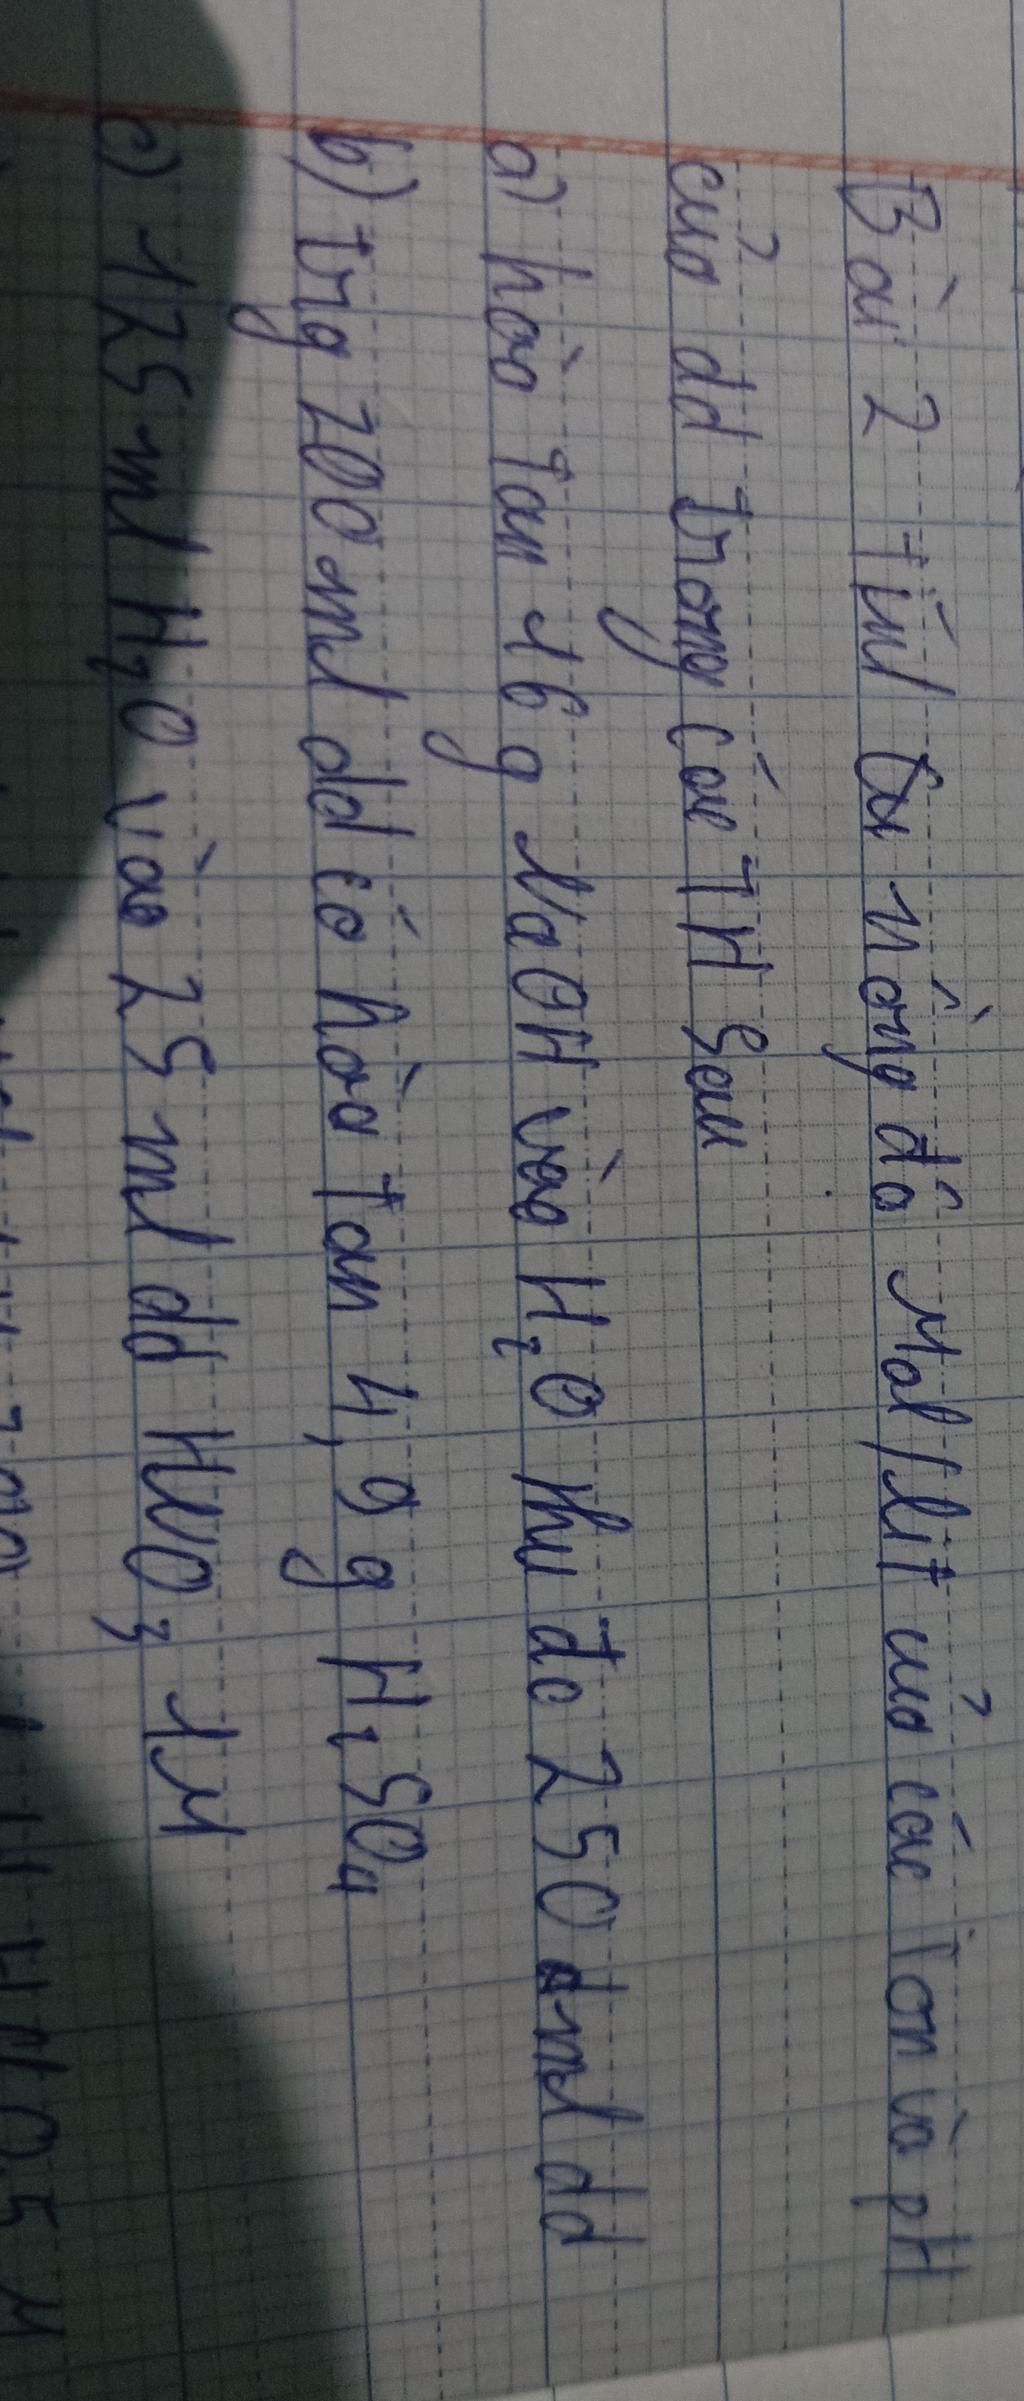 Bài 2 Tính Cu nồng độ Mol/lit của các ion và pH
của dd trong các TH Sau
a) hòa Tan 16 g NaOH vào H₂O thu đc 250 ml dd
b) trg 200 ml dd có hòa Tan 4,9 g H₂SO₄
c) 125 ml H₂O vào 25 ml dd HNO₃ 1M